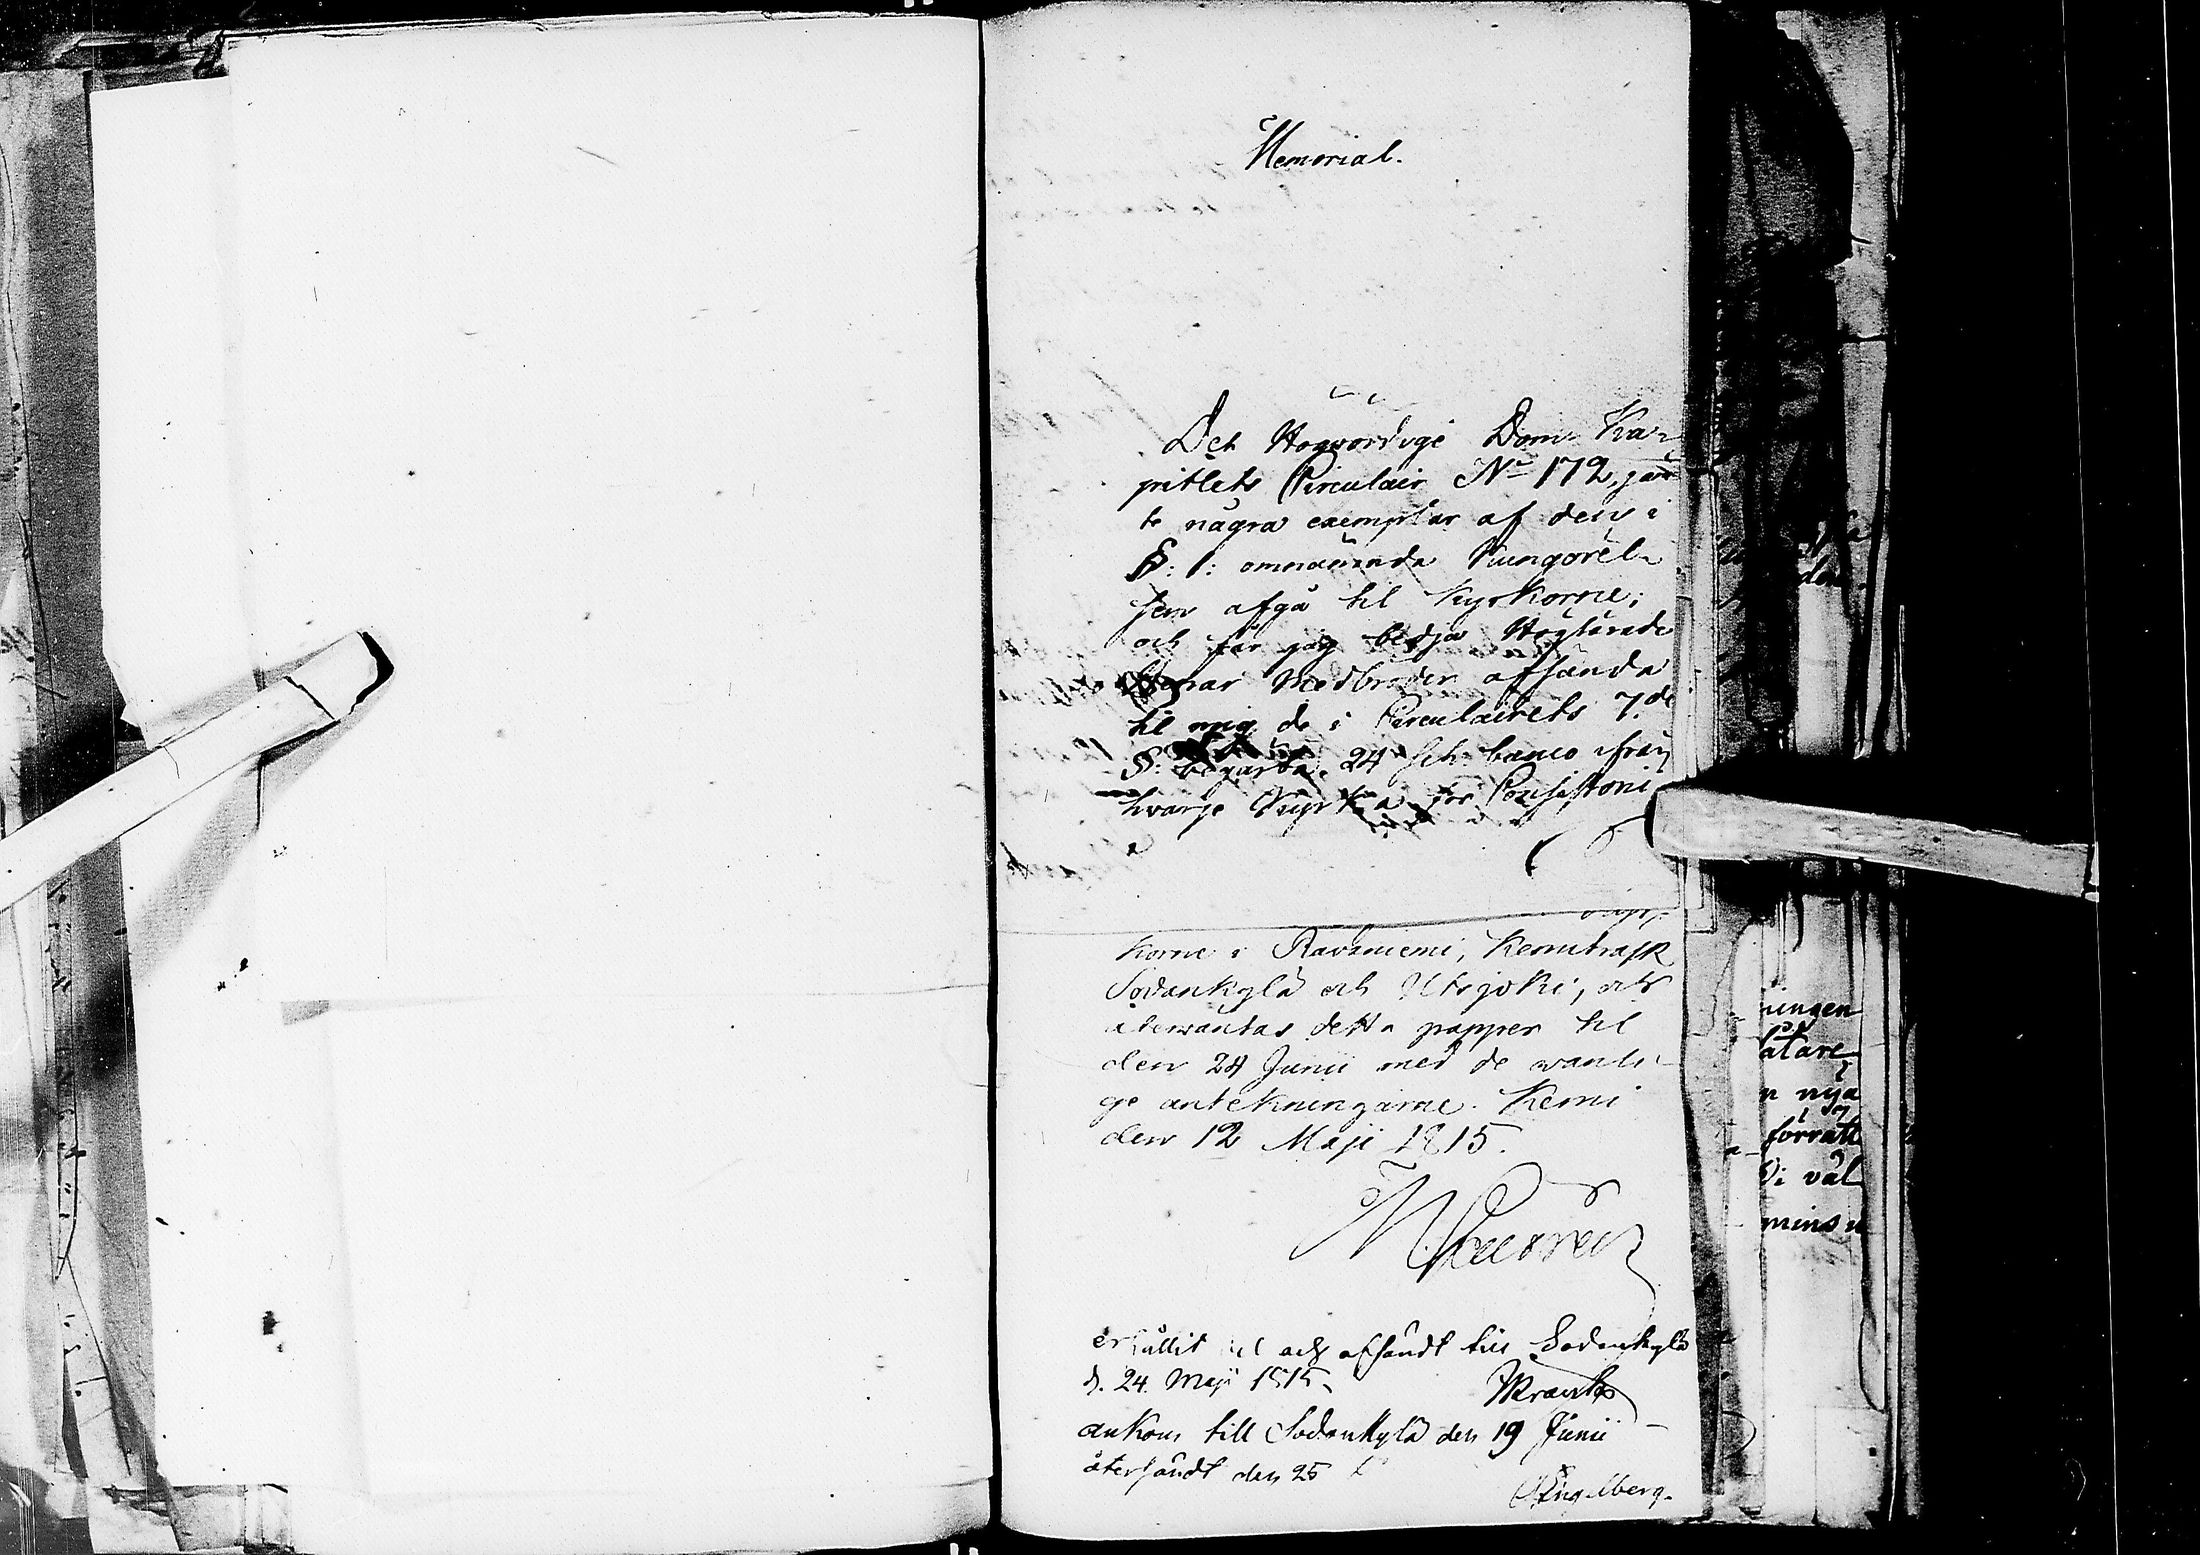 Memorial.
Det Högwördige Dom-Ka-
pitlets Circulair N:o 172, jäm
te några exemplar af den i
§: 1: omnämnda Kungörel-
sen afgå til Kyrkorne;
och får jag bedja Höglärade
Herrar Medbröder afsända
til mig de i Circulairets 7.de
§: begärta 24 sch: banco ifrån
hvarje Kyrka för Consistorii
korne i Råvaniemi, Kemiträsk
Sodankylä och Utsjoki, och
återwäntas detta papper til
den 24 Junii med de wanli-
ge antekningarne. Kemi
den 12 Maji 1815.
erhållit och afsändt till Sodankylä
d. 24. Maji 1815.
ankom till Sodankylä den 19 Junii
återsändt den 25
Engelberg.
ningen
låtare
n nya
förrätt
Di väl